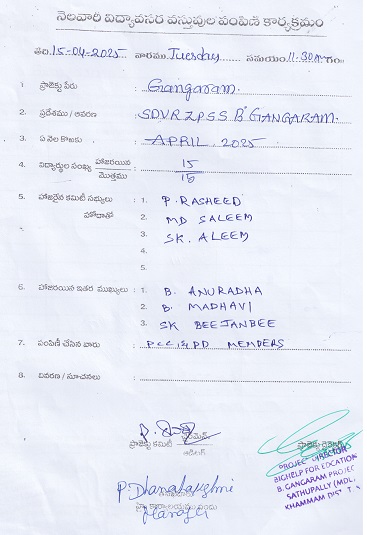 నెలవారీ విద్యావసర వస్తువుల పంపిణీ కార్యక్రమం
తేది.15-04-2025 వారము Tuesday సమయం 11-30 గం
1 ప్రాజెక్టు పేరు : Gangaram.
2. ప్రదేశము / ఆవరణ : SDVR.Z.P.S.S. B GANGARAM.
3. ఏ నెల కొఱకు : APRIL 2025
4. విద్యార్థుల సంఖ్య హాజరయిన / మొత్తము : 15 / 15
5. హాజరైన కమిటీ సభ్యులు : 1. P. RASHEED
హోదాతో 2. MD SALEEM
3. SK. ALEEM
4.
5.
6. హాజరయిన ఇతర ముఖ్యులు : 1. B. ANURADHA
2. B. MADHAVI
3. SK BEEJANBEE
7. పంపిణీ చేసిన వారు : PCC & PD MEMDERS
8. వివరణ / సూచనలు :
ప్రాజెక్టు కమిటీ
P. Dhanalakshmi
PROJECT DIRECTOR
BIGHELP FOR EDCATION
B. GANGARAM PROJEC
SATHUPALLY (MDL.
KHAMMAM DIST. T